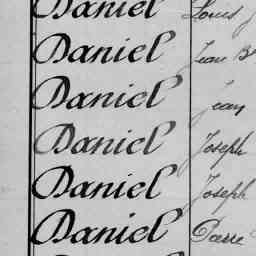 Daniel Louis
Daniel Jean B
Daniel Jean
Daniel Joseph
Daniel Joseph
Daniel Pierre